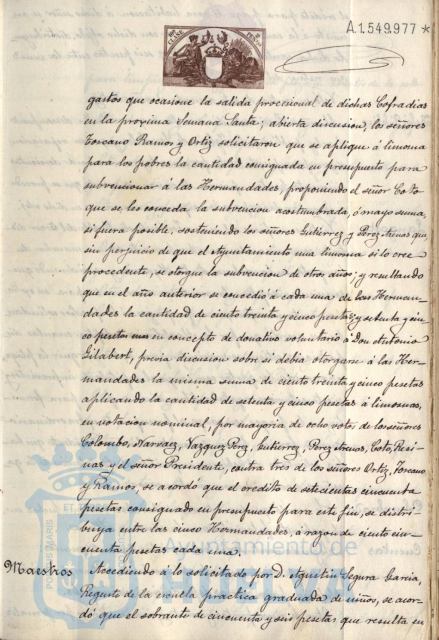 A.1.549.977 *
gastos que ocasione la salida procesional de dichas Cofradias
en la proxima Semana Santa; abierta discusion, los señores
Toscano, Ramos y Ortiz solicitaron que se aplique á limosna
para los pobres la cantidad consignada en presupuesto para
subvencionar á las Hermandades, proponiendo el señor Coto
que se les conceda la subvencion acostumbrada, ó mayor suma,
si fuera posible, sosteniendo los señores Gutierrez y Perez Arenas que
sin perjuicio de que el Ayuntamiento una limosna si lo cree
procedente, se otorgue la subvencion de otros años; y resultando
que en el año anterior se concedió á cada una de las Herman-
dades la cantidad de ciento treinta y cinco pesetas; y setenta y cin-
co pesetas en concepto de donativo voluntario á Don Antonio
Gilabert, previa discusion sobre si debia otorgarse á las Her-
mandades la misma suma de ciento treinta y cinco pesetas
aplicando la cantidad de setenta y cinco pesetas á limosnas,
en votacion nominal, por mayoria de ocho votos de los señores
Colombo, Narvaez, Vazquez Perez, Gutierrez, Perez Arenas, Coto, Resi-
nas y el señor Presidente, contra tres de los señores Ortiz, Toscano
y Ramos, se acordó que el credito de setecientas cincuenta
pesetas consignado en presupuesto para este fin, se distri-
buya entre las cinco Hermandades, á razon de ciento cin-
cuenta pesetas cada una.
Maestros Accediendo á lo solicitado por D. Agustin Segura Garcia,
Regente de la escuela practica graduada de niños, se acor-
dó que el sobrante de cincuenta y seis pesetas que resulta en
Ayuntamiento de